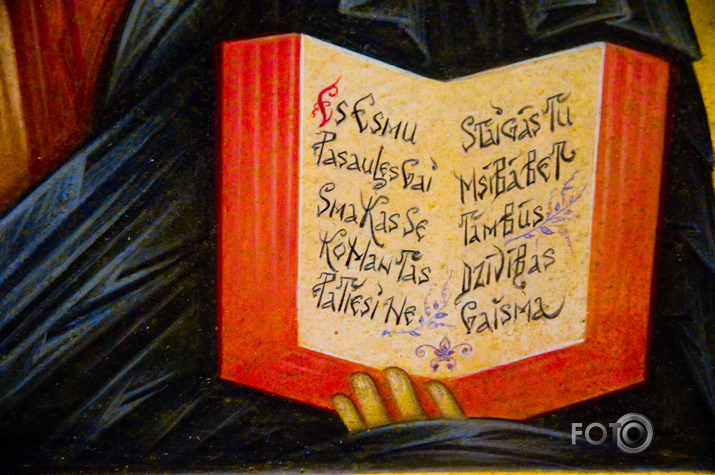 Es Esmu
Pasaules Gai
Sma Kas Se
Ko Man Tas
Patiesi Ne
Staigās Tu
Msībā Bet
Tam Būs
Dzīvības
Gaisma
FOTO